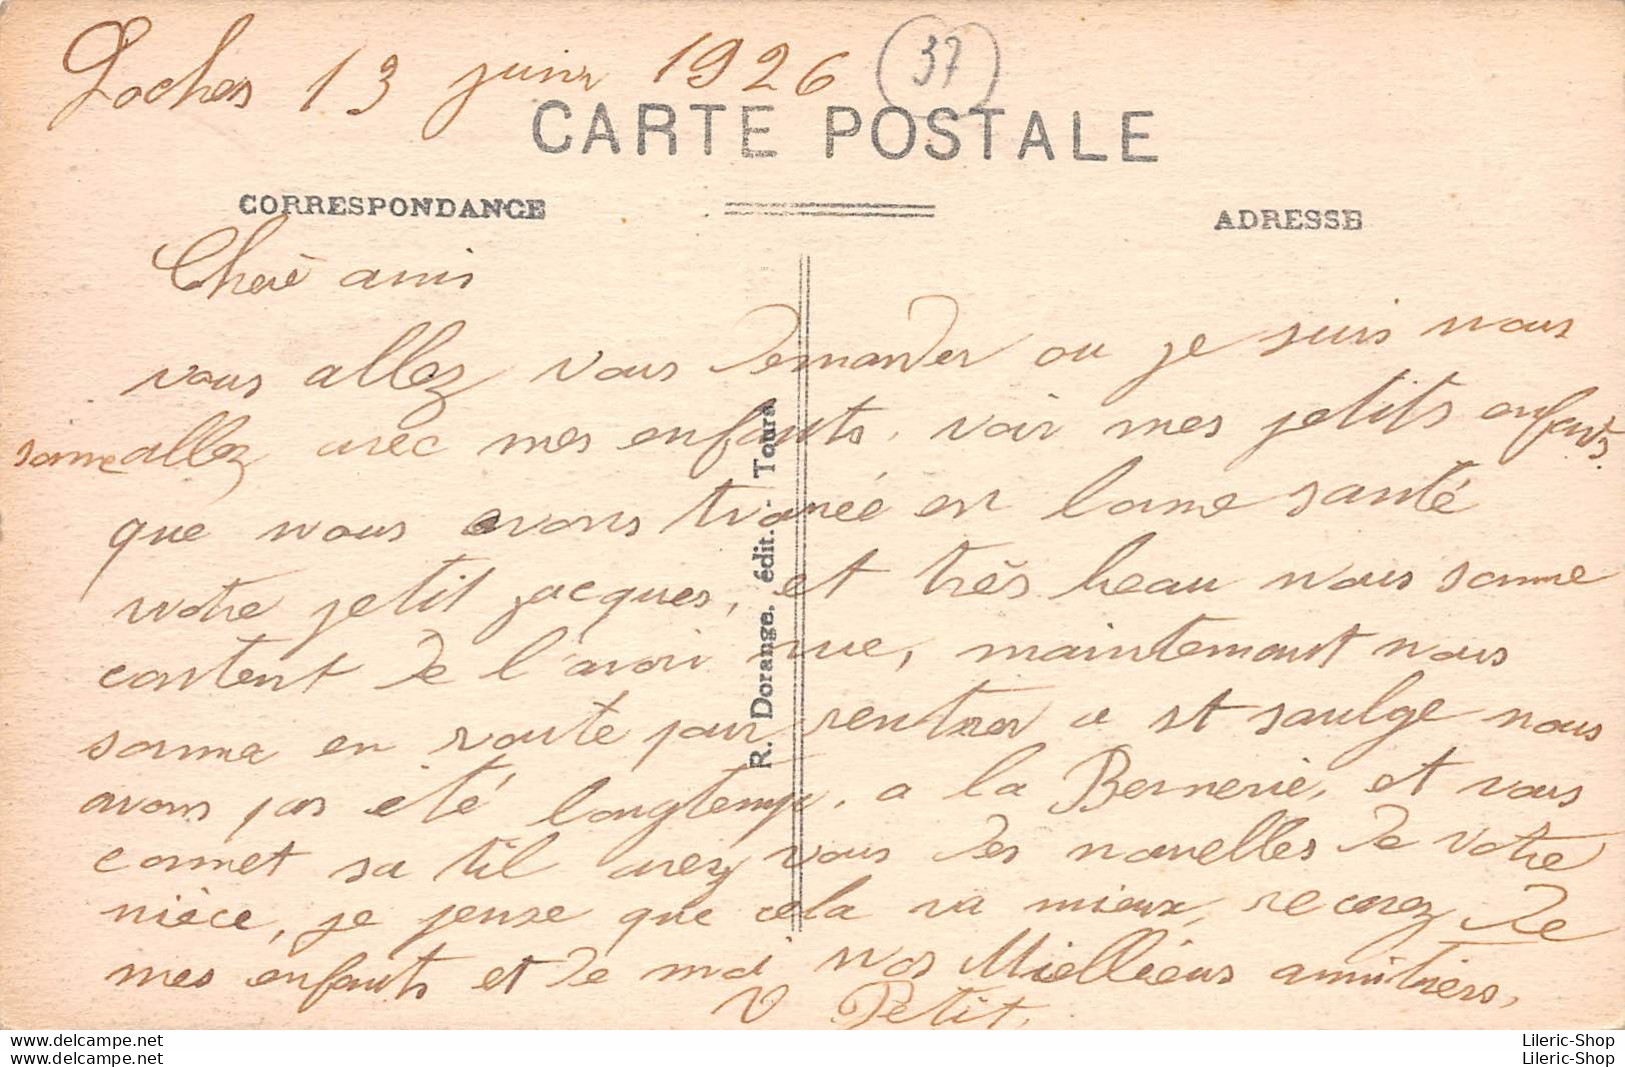 Loches 13 juin 1926
37
CARTE POSTALE
CORRESPONDANCE
ADRESSE
Cheré amis
vous allez vous demander ou je suis nous
somme allez avec mes enfants, voir mes petits enfants.
que nous avons trouvée en bonne santé
votre petit jacques, et très beau nous somme
content de l'avoir vue, maintemant nous
somme en route pour rentrer a st saulge nous
avons pas été longtemp, a la Bernerie, et vous
comet sa til avez vous des nouvelles de votre
nièce, je pense que cela va mieux, recevez de
mes enfants et de moi nos Mielliens amitiers,
V Petit,
R. Dorange, édit. - Tours
Lileric-Shop and
Lileric-Shop and
Lileric-Shop
Lileric-Shop